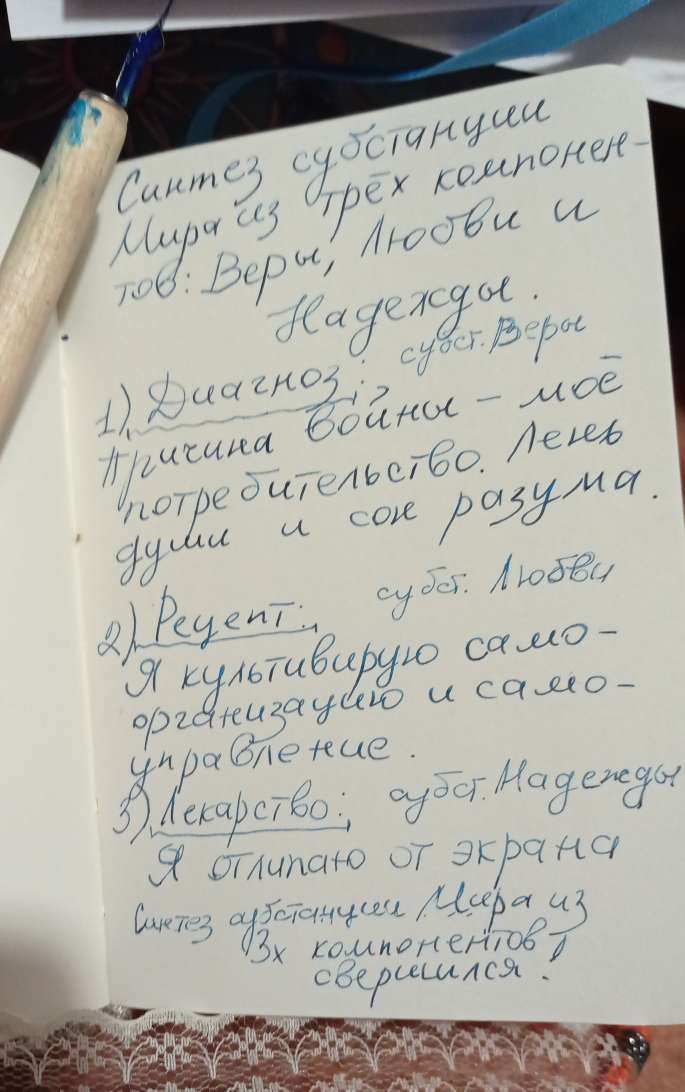 Синтез субстанции
Мира из трёх компонен-
тов: Веры, Любви и
Надежды.
субст. Веры
1) Диагноз:
Причина войны - моё
потребительство. Лень
души и сон разума.
субст. Любви
2) Рецепт:
Я культивирую само-
организацию и само-
управление.
3) Лекарство: субст. Надежды
Я отлипаю от экрана
Синтез субстанции Мира из
3х компонентов
свершился.